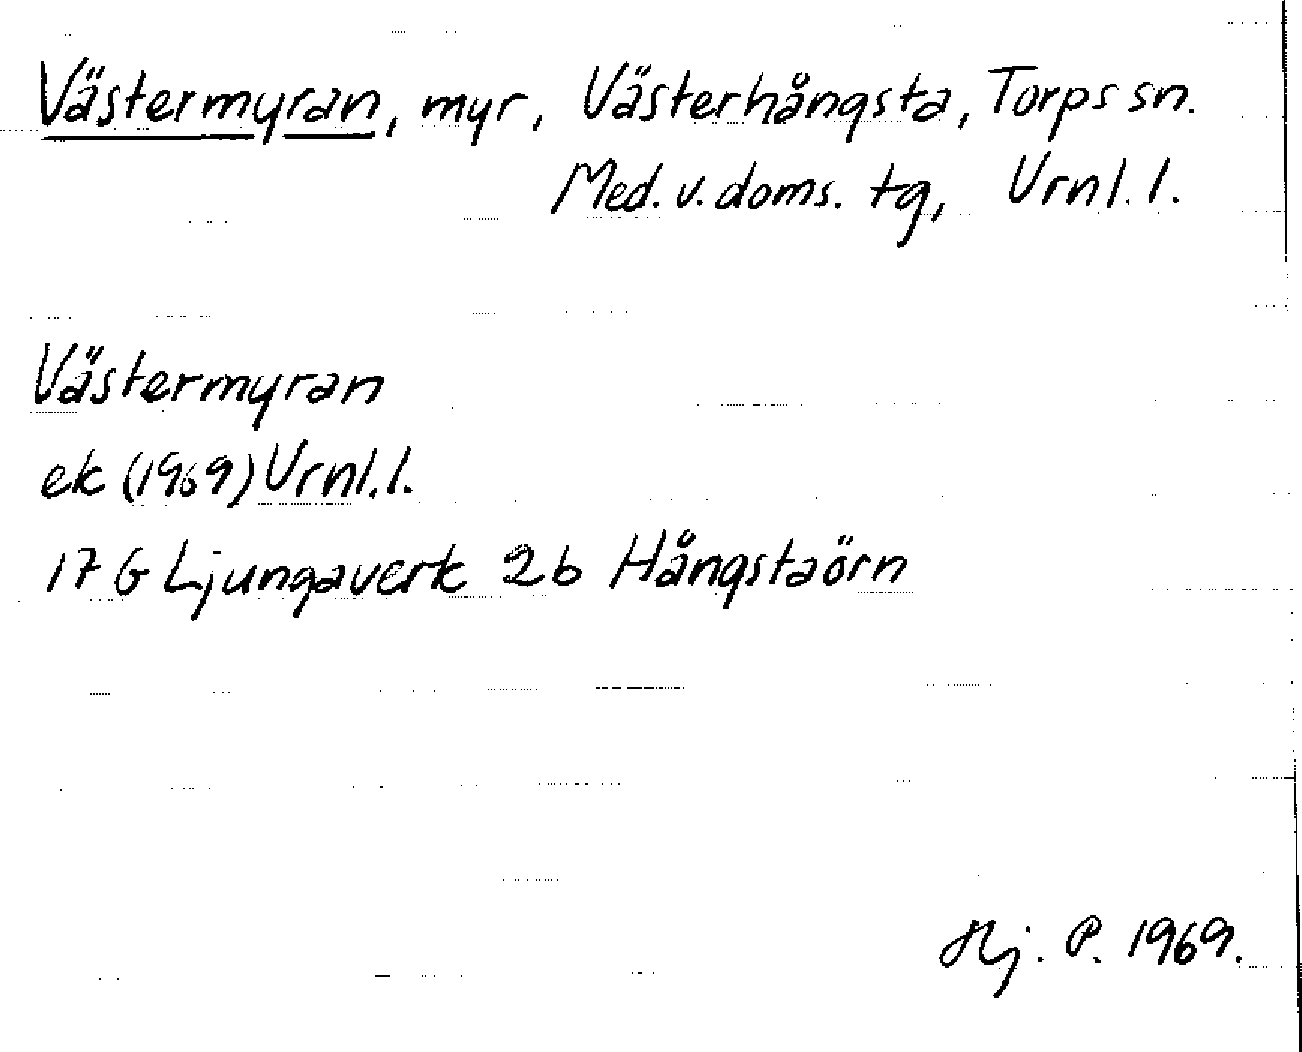 Västermyran, myr, Västerhångsta, Torps sn.
Med. v. doms. tg, Urnl. l.
Västermyran
ek (1969) Urnl. l.
17 G Ljungaverk 2b Hångstaörn
Hj. P. 1969.